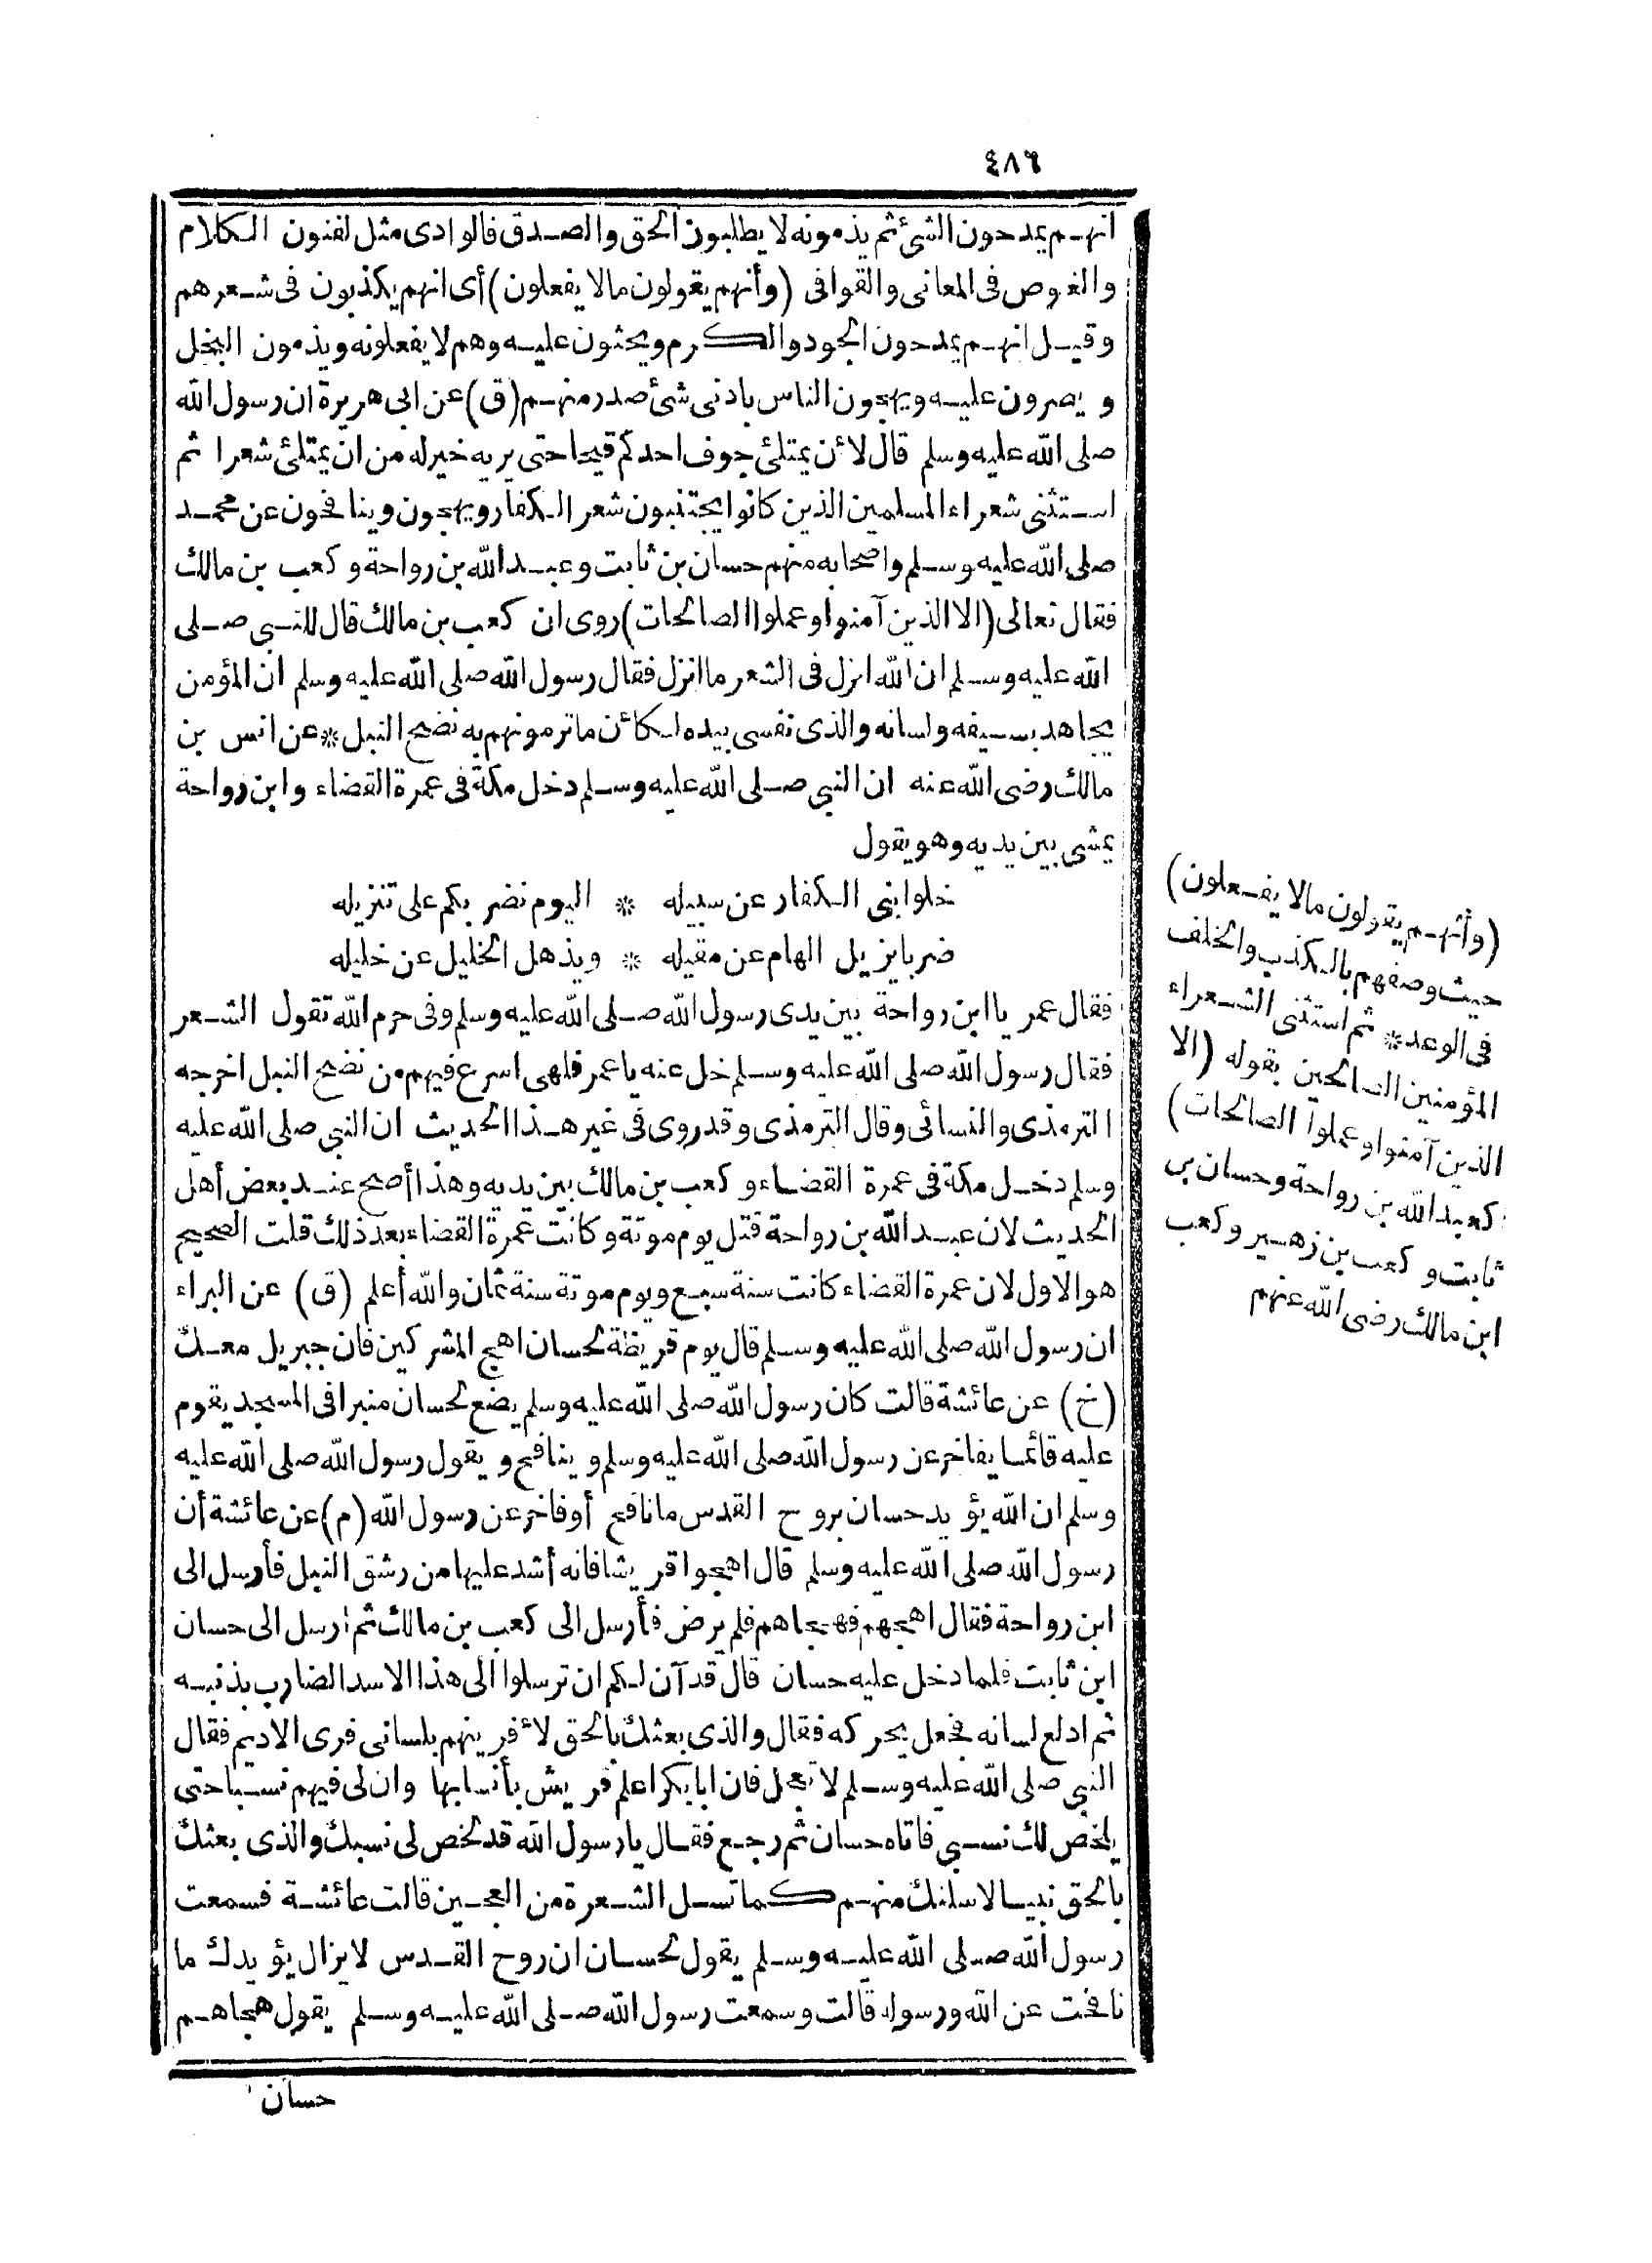 ٤٨٦
انهم يمدحون الشئ ثم يذمونه لا يطلبون الحق والصدق فالوادى مثل لفنون الكلام
والغوص فى المعانى والقوافى (وأنهم يقولون مالا يفعلون) أى انهم يكذبون فى شعرهم
وقيل انهم يمدحون الجود والكرم ويحثون عليه وهم لا يفعلونه ويذمون البخل
ويصرون عليه ويهجون الناس بادنى شئ صدر منهم (ق) عن ابى هريرة ان رسول الله
صلى الله عليه وسلم قال لأن يمتلئ جوف احدكم قيحا حتى يريه خير له من ان يمتلئ شعرا ثم
استثنى شعراء المسلمين الذين كانوا يجتنبون شعر الكفار ويهجون وينافحون عن محمد
صلى الله عليه وسلم واصحابه منهم حسان بن ثابت وعبد الله بن رواحة وكعب بن مالك
فقال تعالى (الا الذين آمنوا وعملوا الصالحات) روى ان كعب بن مالك قال للنبي صلى
الله عليه وسلم ان الله انزل فى الشعر ما انزل فقال رسول الله صلى الله عليه وسلم ان المؤمن
يجاهد بسيفه ولسانه والذى نفسى بيده لكأن ما ترمونهم به نضح النبل * عن انس بن
مالك رضى الله عنه ان النبي صلى الله عليه وسلم دخل مكة فى عمرة القضاء وابن رواحة
يمشى بين يديه وهو يقول
خلوا بنى الكفار عن سبيله * اليوم نضر بكم على تنزيله
ضربا يزيل الهام عن مقيله * ويذهل الخليل عن خليله
فقال عمر يا ابن رواحة بين يدى رسول الله صلى الله عليه وسلم وفى حرم الله تقول الشعر
فقال رسول الله صلى الله عليه وسلم خل عنه يا عمر فلهى اسرع فيهم من نضح النبل اخرجه
الترمذى والنسائى وقال الترمذى وقد روى فى غير هذا الحديث ان النبي صلى الله عليه
وسلم دخل مكة فى عمرة القضاء وكعب بن مالك بين يديه وهذا أصح عند بعض أهل
الحديث لان عبد الله بن رواحة قتل يوم موتة وكانت عمرة القضاء بعد ذلك قلت الصحيح
هو الاول لان عمرة القضاء كانت سنة سبع ويوم موتة سنة ثمان والله أعلم (ق) عن البراء
ان رسول الله صلى الله عليه وسلم قال يوم قريظة لحسان اهج المشركين فان جبريل معك
(خ) عن عائشة قالت كان رسول الله صلى الله عليه وسلم يضع لحسان منبرا فى المسجد يقوم
عليه قائما يفاخر عن رسول الله صلى الله عليه وسلم وينافح ويقول رسول الله صلى الله عليه
وسلم ان الله يؤيد حسان بروح القدس ما نافح أو فاخر عن رسول الله (م) عن عائشة أن
رسول الله صلى الله عليه وسلم قال اهجوا قريشا فانه أشد عليها من رشق النبل فأرسل الى
ابن رواحة فقال اهجهم فهجاهم فلم يرض فأرسل الى كعب بن مالك ثم ارسل الى حسان
ابن ثابت فلما دخل عليه حسان قال قد آن لكم ان ترسلوا الى هذا الاسد الضارب بذنبه
ثم ادلع لسانه فجعل يحركه فقال والذى بعثك بالحق لأفرينهم بلسانى فرى الاديم فقال
النبي صلى الله عليه وسلم لا تعجل فان ابا بكر اعلم قريش بأنسابها وان لى فيهم نسبا حتى
يلخص لك نسبي فاتاه حسان ثم رجع فقال يا رسول الله قد لخص لى نسبك والذى بعثك
بالحق نبيا لاسلنك منهم كما تسل الشعرة من العجين قالت عائشة فسمعت
رسول الله صلى الله عليه وسلم يقول لحسان ان روح القدس لا يزال يؤيدك ما
نافحت عن الله ورسوله قالت وسمعت رسول الله صلى الله عليه وسلم يقول هجاهم
حسان
(وأنهم يقولون مالا يفعلون)
حيث وصفهم بالكذب والخلف
فى الوعد * ثم استثنى الشعراء
المؤمنين الصالحين بقوله (الا
الذين آمنوا وعملوا الصالحات)
كعبد الله بن رواحة وحسان بن
ثابت وكعب بن زهير وكعب
ابن مالك رضى الله عنهم